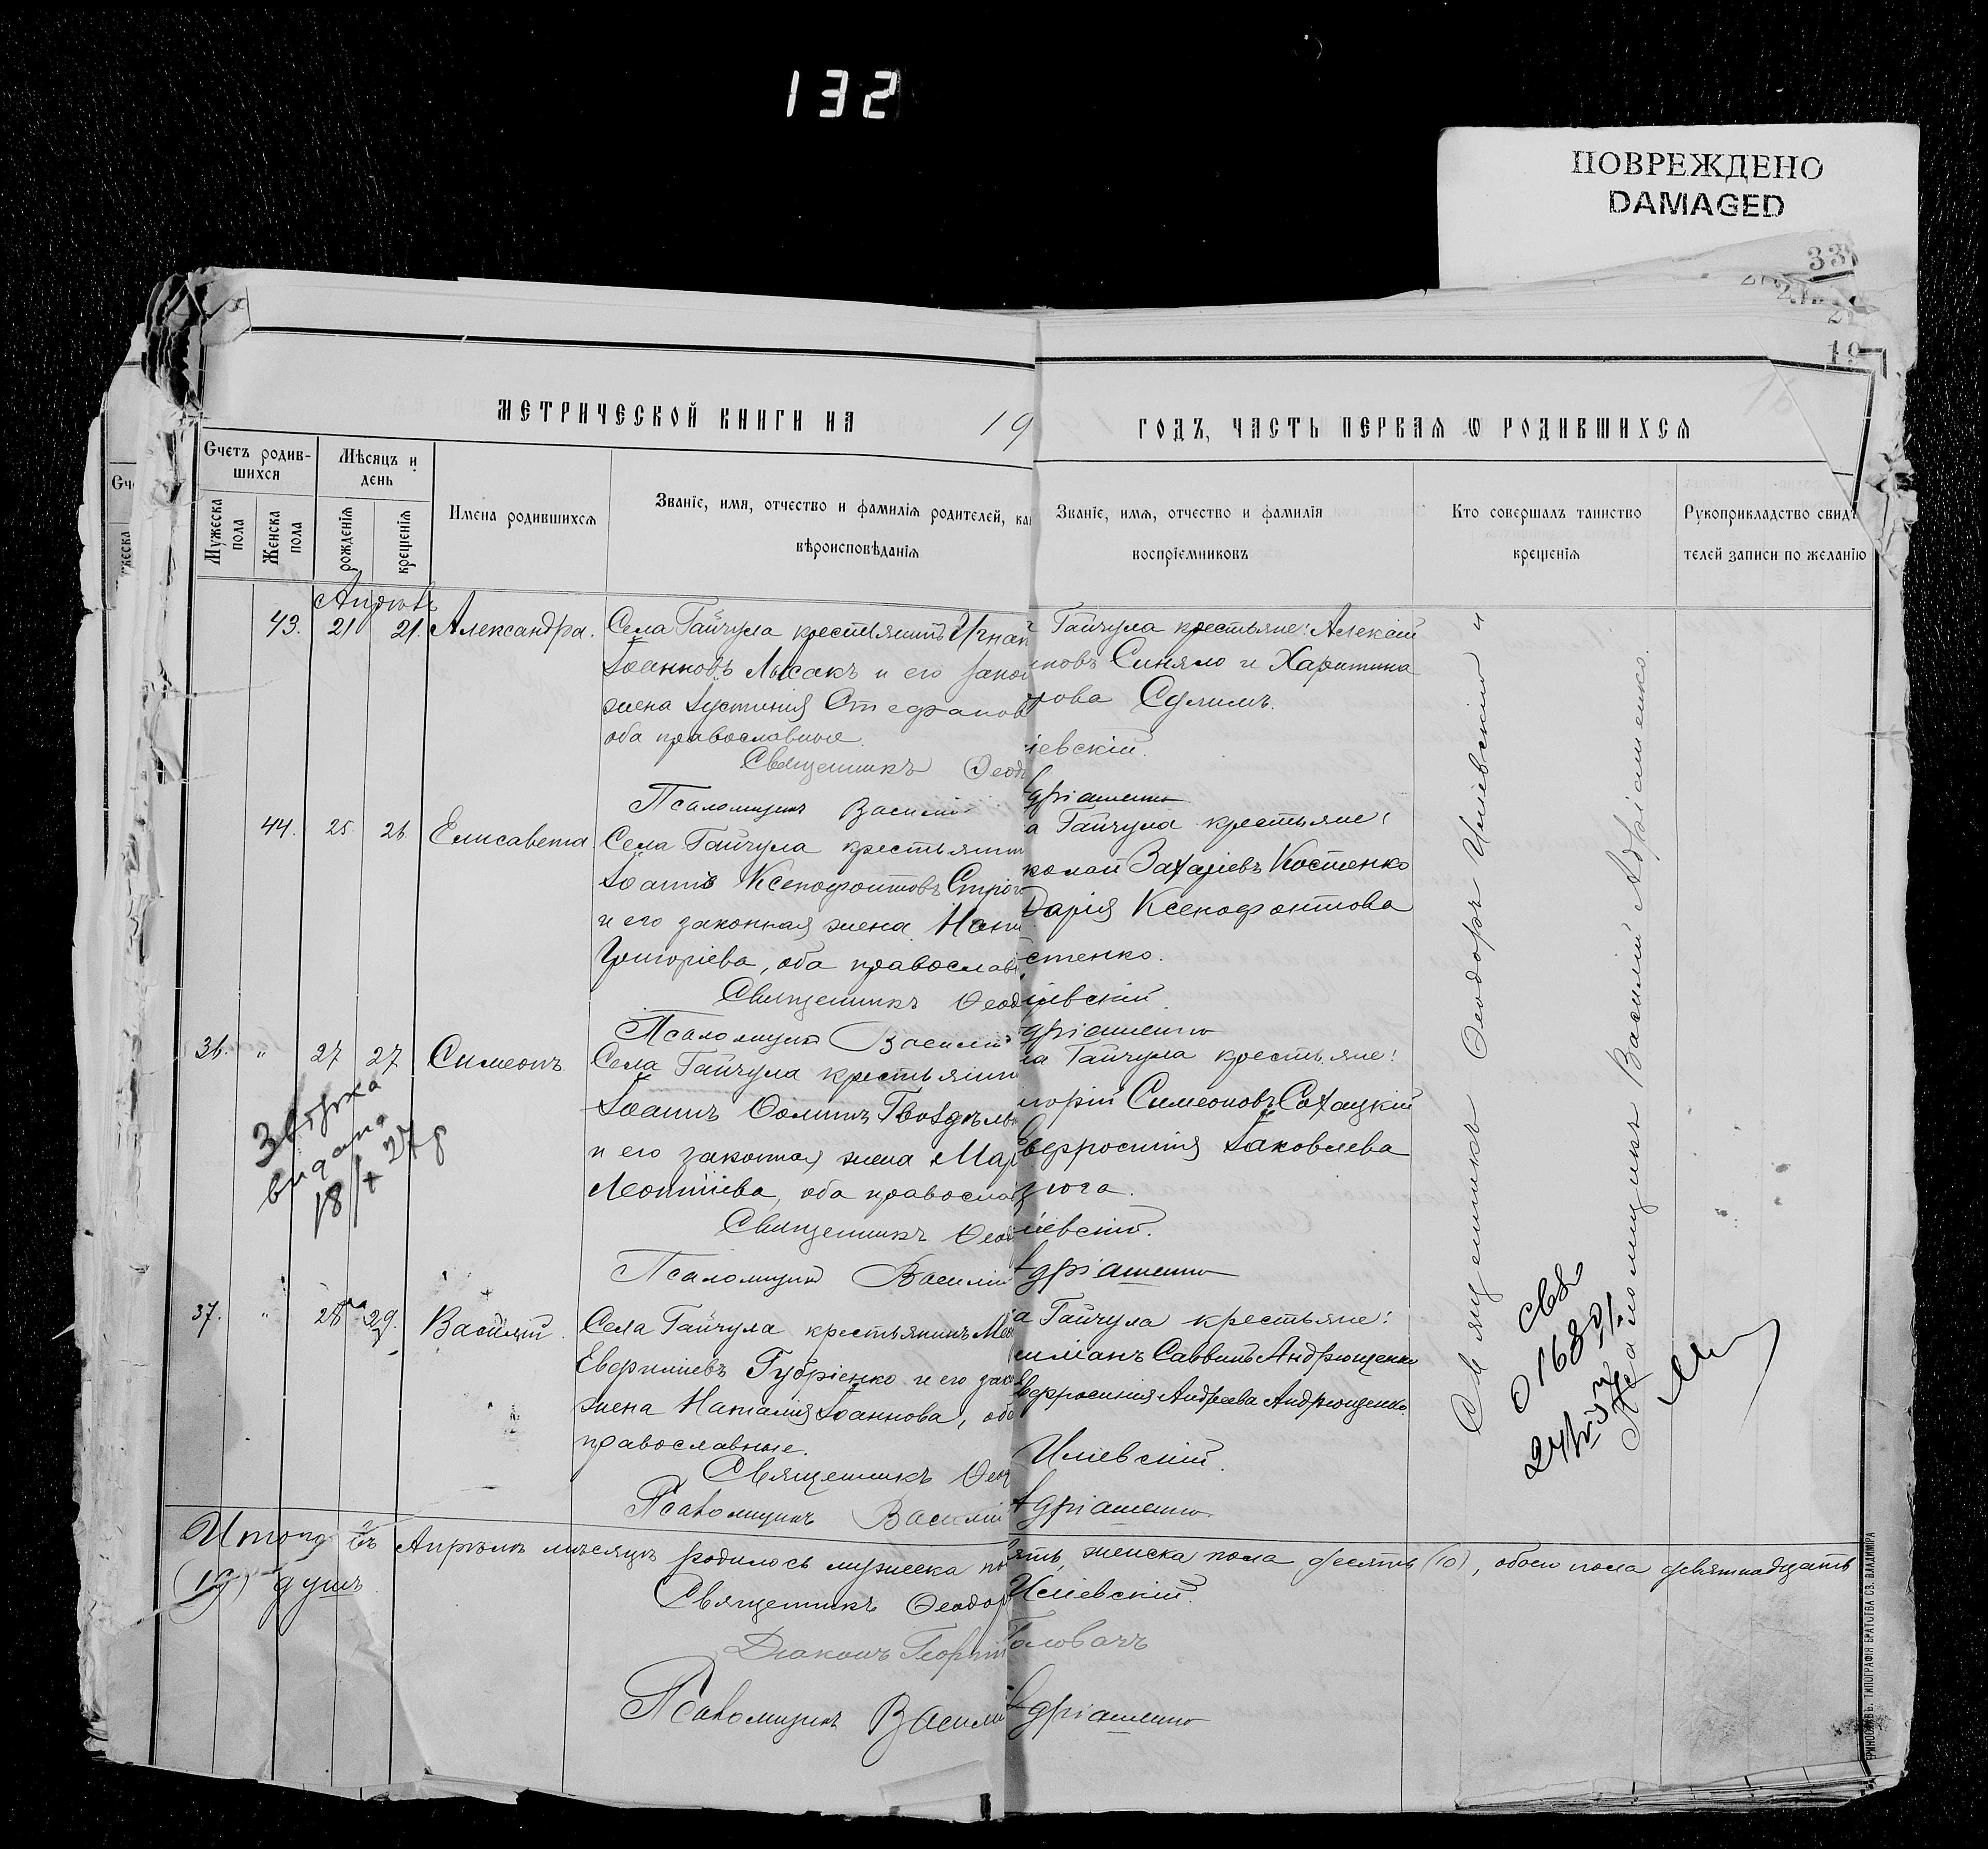 132
ПОВРЕЖДЕНО
DAMAGED
33
19
МЕТРИЧЕСКОЙ КНИГИ НА 19 ГОДЪ, ЧАСТЬ ПЕРВАЯ Ѡ РОДИВШИХСЯ
Счетъ родив-
шихся
Мужеска пола
Женска пола
Мѣсяцъ и день
рожденія
крещенія
Имена родившихся
Званіе, имя, отчество и фамилія родителей, как
вѣроисповѣданія
Званіе, имя, отчество и фамилія
воспріемниковъ
Кто совершалъ таинство
крещенія
Рукоприкладство свидѣ
телей записи по желанію
Апрѣль
43. 21 21. Александра.
Села Гайчула крестьянинъ Игнат
Іоанновъ Лысакъ и его закон
жена Іустинія Стефанов
оба православные.
Священникъ Ѳеод
Псаломщикъ Василій
Гайчула крестьяне: Алексій
новъ Синяло и Харитина
рова
іевскій.
Адріашенко
44. 25. 26. Елисавета
Села Гайчула крестьянин
Іоаннъ Ксенофонтовъ
и его законная жена Ната
Григоріева, оба православ
Священникъ Ѳеод
Псаломщикъ Василій
а Гайчула крестьяне:
колай Захаріевъ Костенко
Дарія Ксенофонтова
стенко.
іевскій
Адріашенко
36. " 27 27 Симеонъ
Села Гайчула крестьянин
Іоаннъ Ѳоминъ
и его законная жена Мар
Леонтіева, оба правосла
Священникъ Ѳеод
Псаломщикъ Василій
ла Гайчула крестьяне:
игорій Симеоновъ Сахацкій
Евфросинія Іаковлева
зюга.
іевскій.
Адріашенко
видана
18/X 27 р
37. " 28 29. Василій.
Села Гайчула крестьянинъ
Евфиміевъ Губріенко и его зак
жена Наталія Іоаннова, оба
православные.
Священникъ Ѳеод
Псаломщикъ Василій
а Гайчула крестьяне:
иліанъ Саввинъ Андрющенко
Евфросинія Андреева Андрющенко.
Иліевскій.
Адріашенко
Священникъ Ѳеодоръ Иліевскій и
Псаломщикъ Василій Адріашенко.
Итого въ Апрѣлѣ мѣсяцѣ родилось мужеска по ять, женска пола десять (10), обоего пола девятнадцать
(19) душъ.
Священникъ Ѳеодор Иліевскій.
Діаконъ Георгій Головачъ
Псаломщикъ Василій Адріашенко
ТИПОГРАФІЯ БРАТСТВА СВ. ВЛАДИМІРА